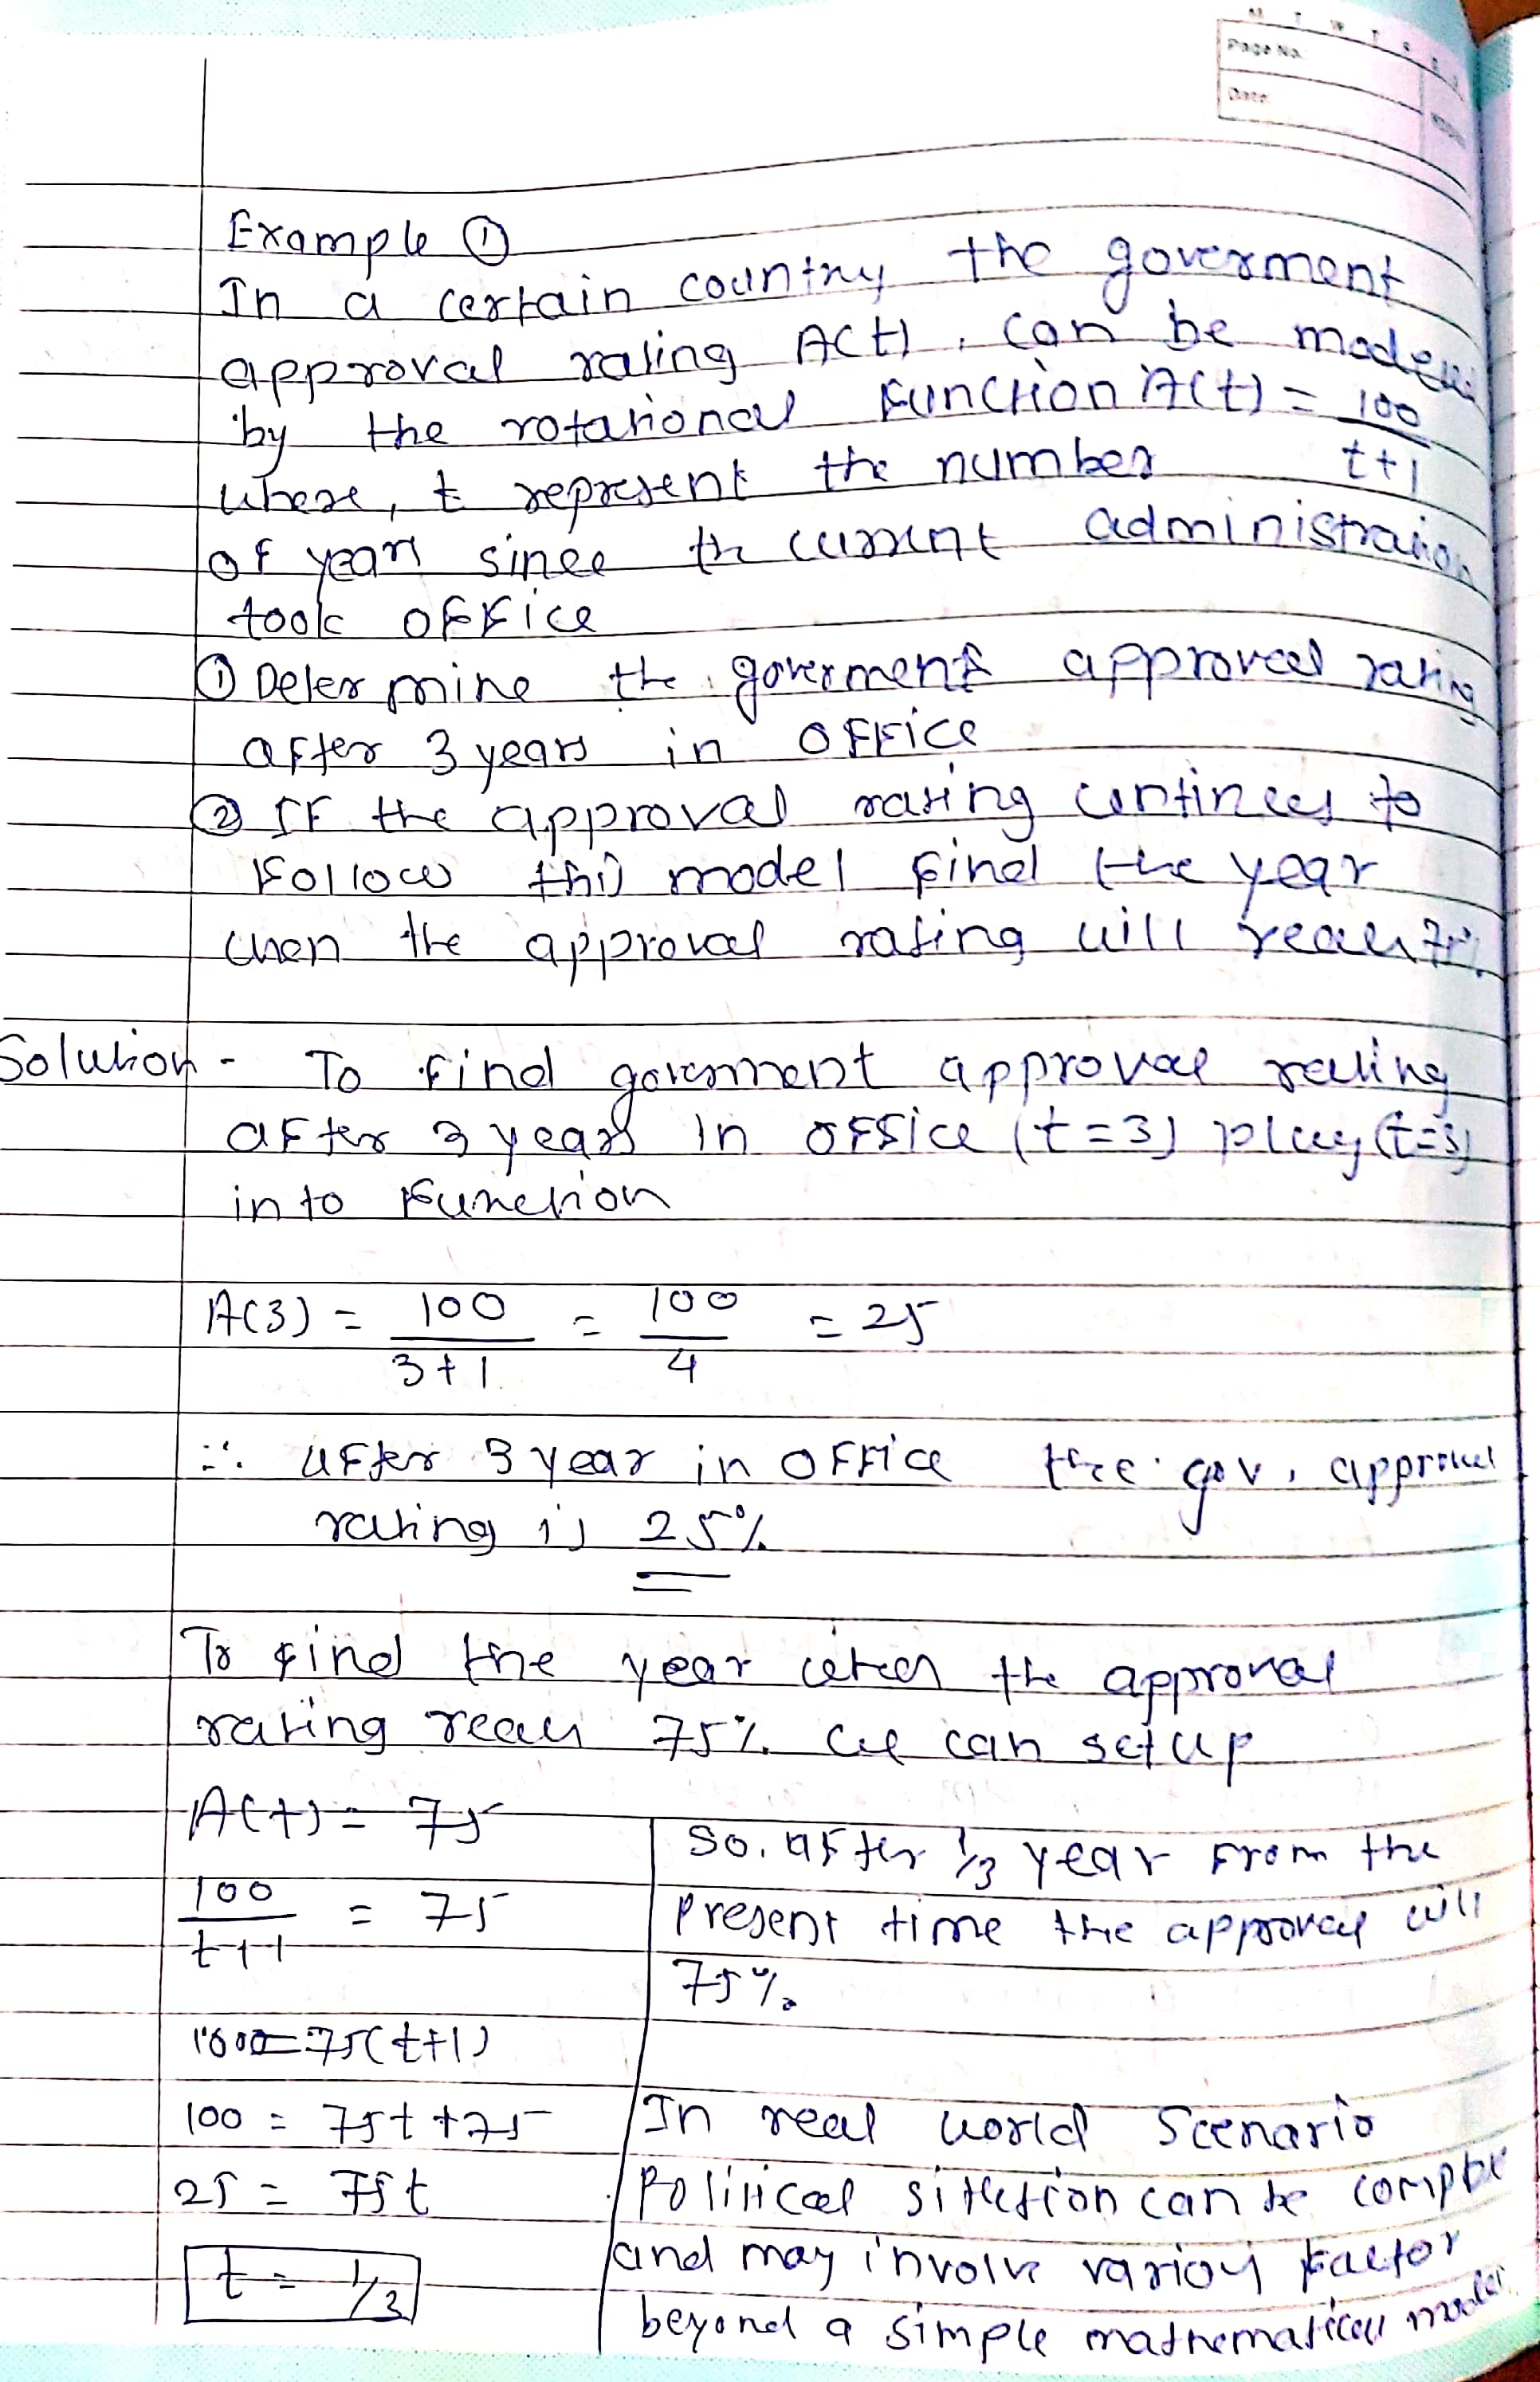 M T W T F S S
Page No.
Date
Example ①
In a certain country the goverment
approval rating A(t), can be
by the rotational function A(t) = 100
t+1
where, t represent the number
of years since the current administration
took office
① Determine the goverment approval rating
after 3 years in office
② If the approval rating continues to
follow this model find the year
when the approval rating will reach 75%
Solution - To find goverment approval rating
after 3 years in office (t=3) plug (t=3)
into function
A(3) = 100 = 100 = 25
3+1 4
∴ after 3 year in office the gov. approval
rating is 25%
To find the year when the approval
rating reach 75% we can setup
A(t) = 75
100 = 75
t+1
100=75(t+1)
100 = 75t+75
25 = 75t
t = 1/3
So. after 1/3 year from the
present time the approval will
75%.
In real world Scenario
Political sitution can be
and may involve various factor
beyond a simple mathematical model